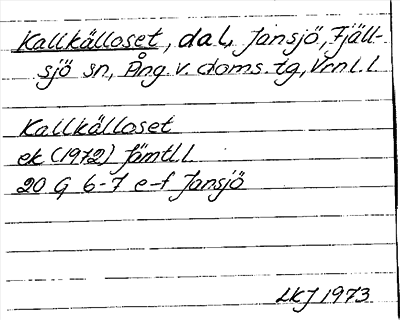 Kallkälloset, dal, Jansjö, Fjäll-
sjö sn, Ång. v. doms. tg, Vrnl. l
Kallkälloset
ek (1972) Jämtl. l
20 G 6-7 e-f Jansjö
LKJ 1973